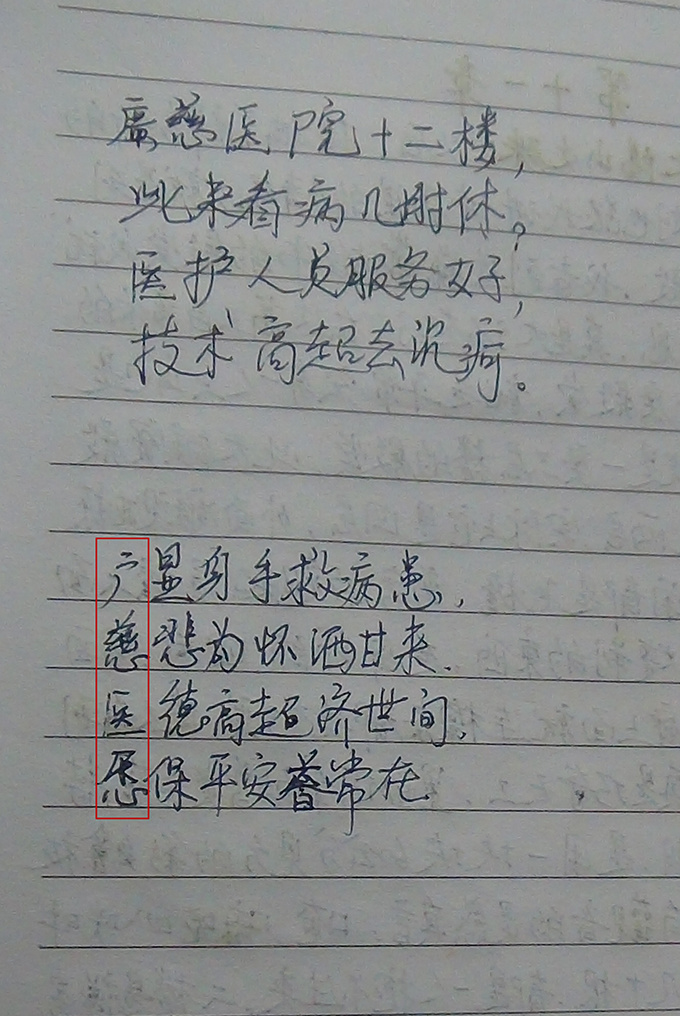 廣慈医院十二楼,
此来看病几时休。
医护人员服务好,
技术高超去沉疴。
广显身手救病患,
慈悲为怀洒甘来.
医德高超济世间,
恩保平安普常在